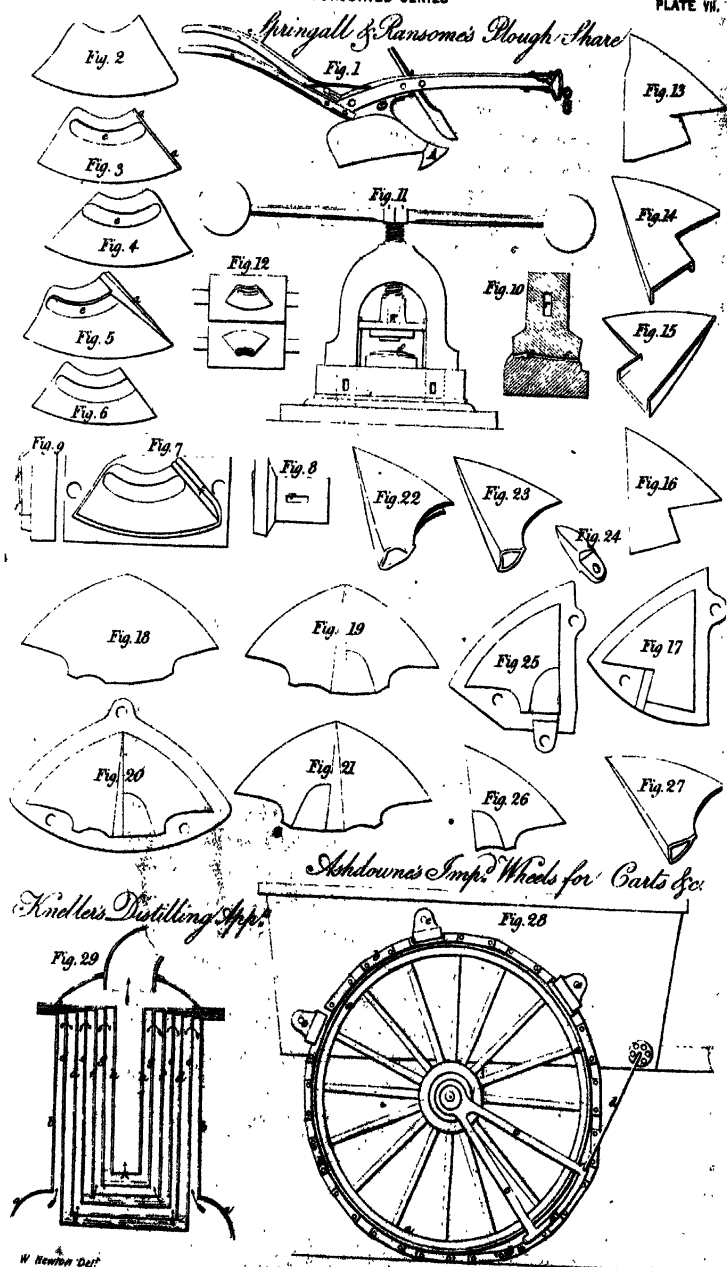 PLATE VII.
Springall & Ransome's Plough Share
Fig. 1
Fig. 2
Fig. 3
Fig. 4
Fig. 5
Fig. 6
Fig. 11
Fig. 12
Fig. 10
Fig. 13
Fig. 14
Fig. 15
Fig. 9
Fig. 7
Fig. 8
Fig. 22
Fig. 23
Fig. 24
Fig. 16
Fig. 18
Fig. 19
Fig. 25
Fig. 17
Fig. 20
Fig. 21
Fig. 26
Fig. 27
Ashdowne's Imp.d Wheels for Carts &c.
Kneller's Distilling App.s
Fig. 28
Fig. 29
W Newton Delt